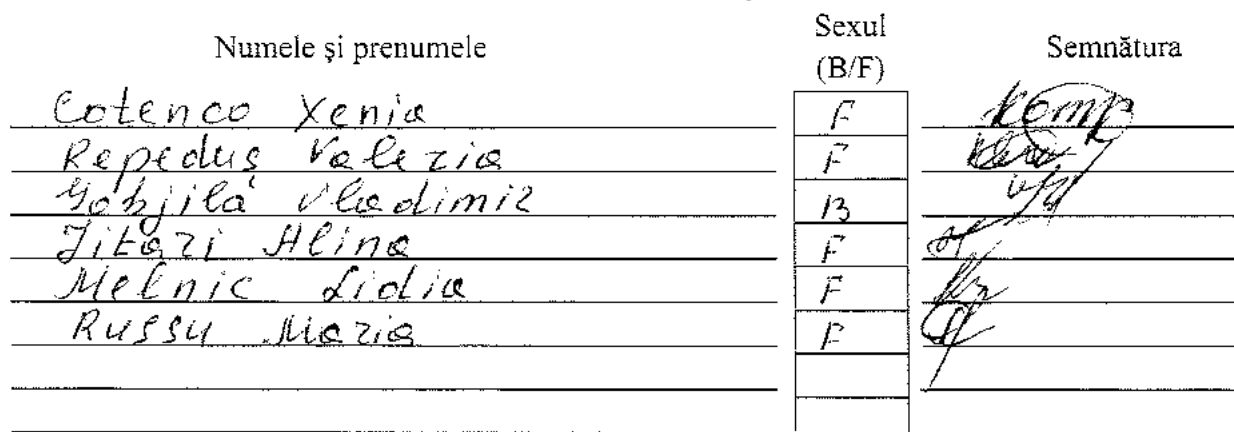 Numele și prenumele Sexul (B/F) Semnătura
Cotenco Xenia F
Repeduș Valeria F
Gobjilă Vladimir B
Jitari Alina F
Melnic Lidia F
Russu Maria F